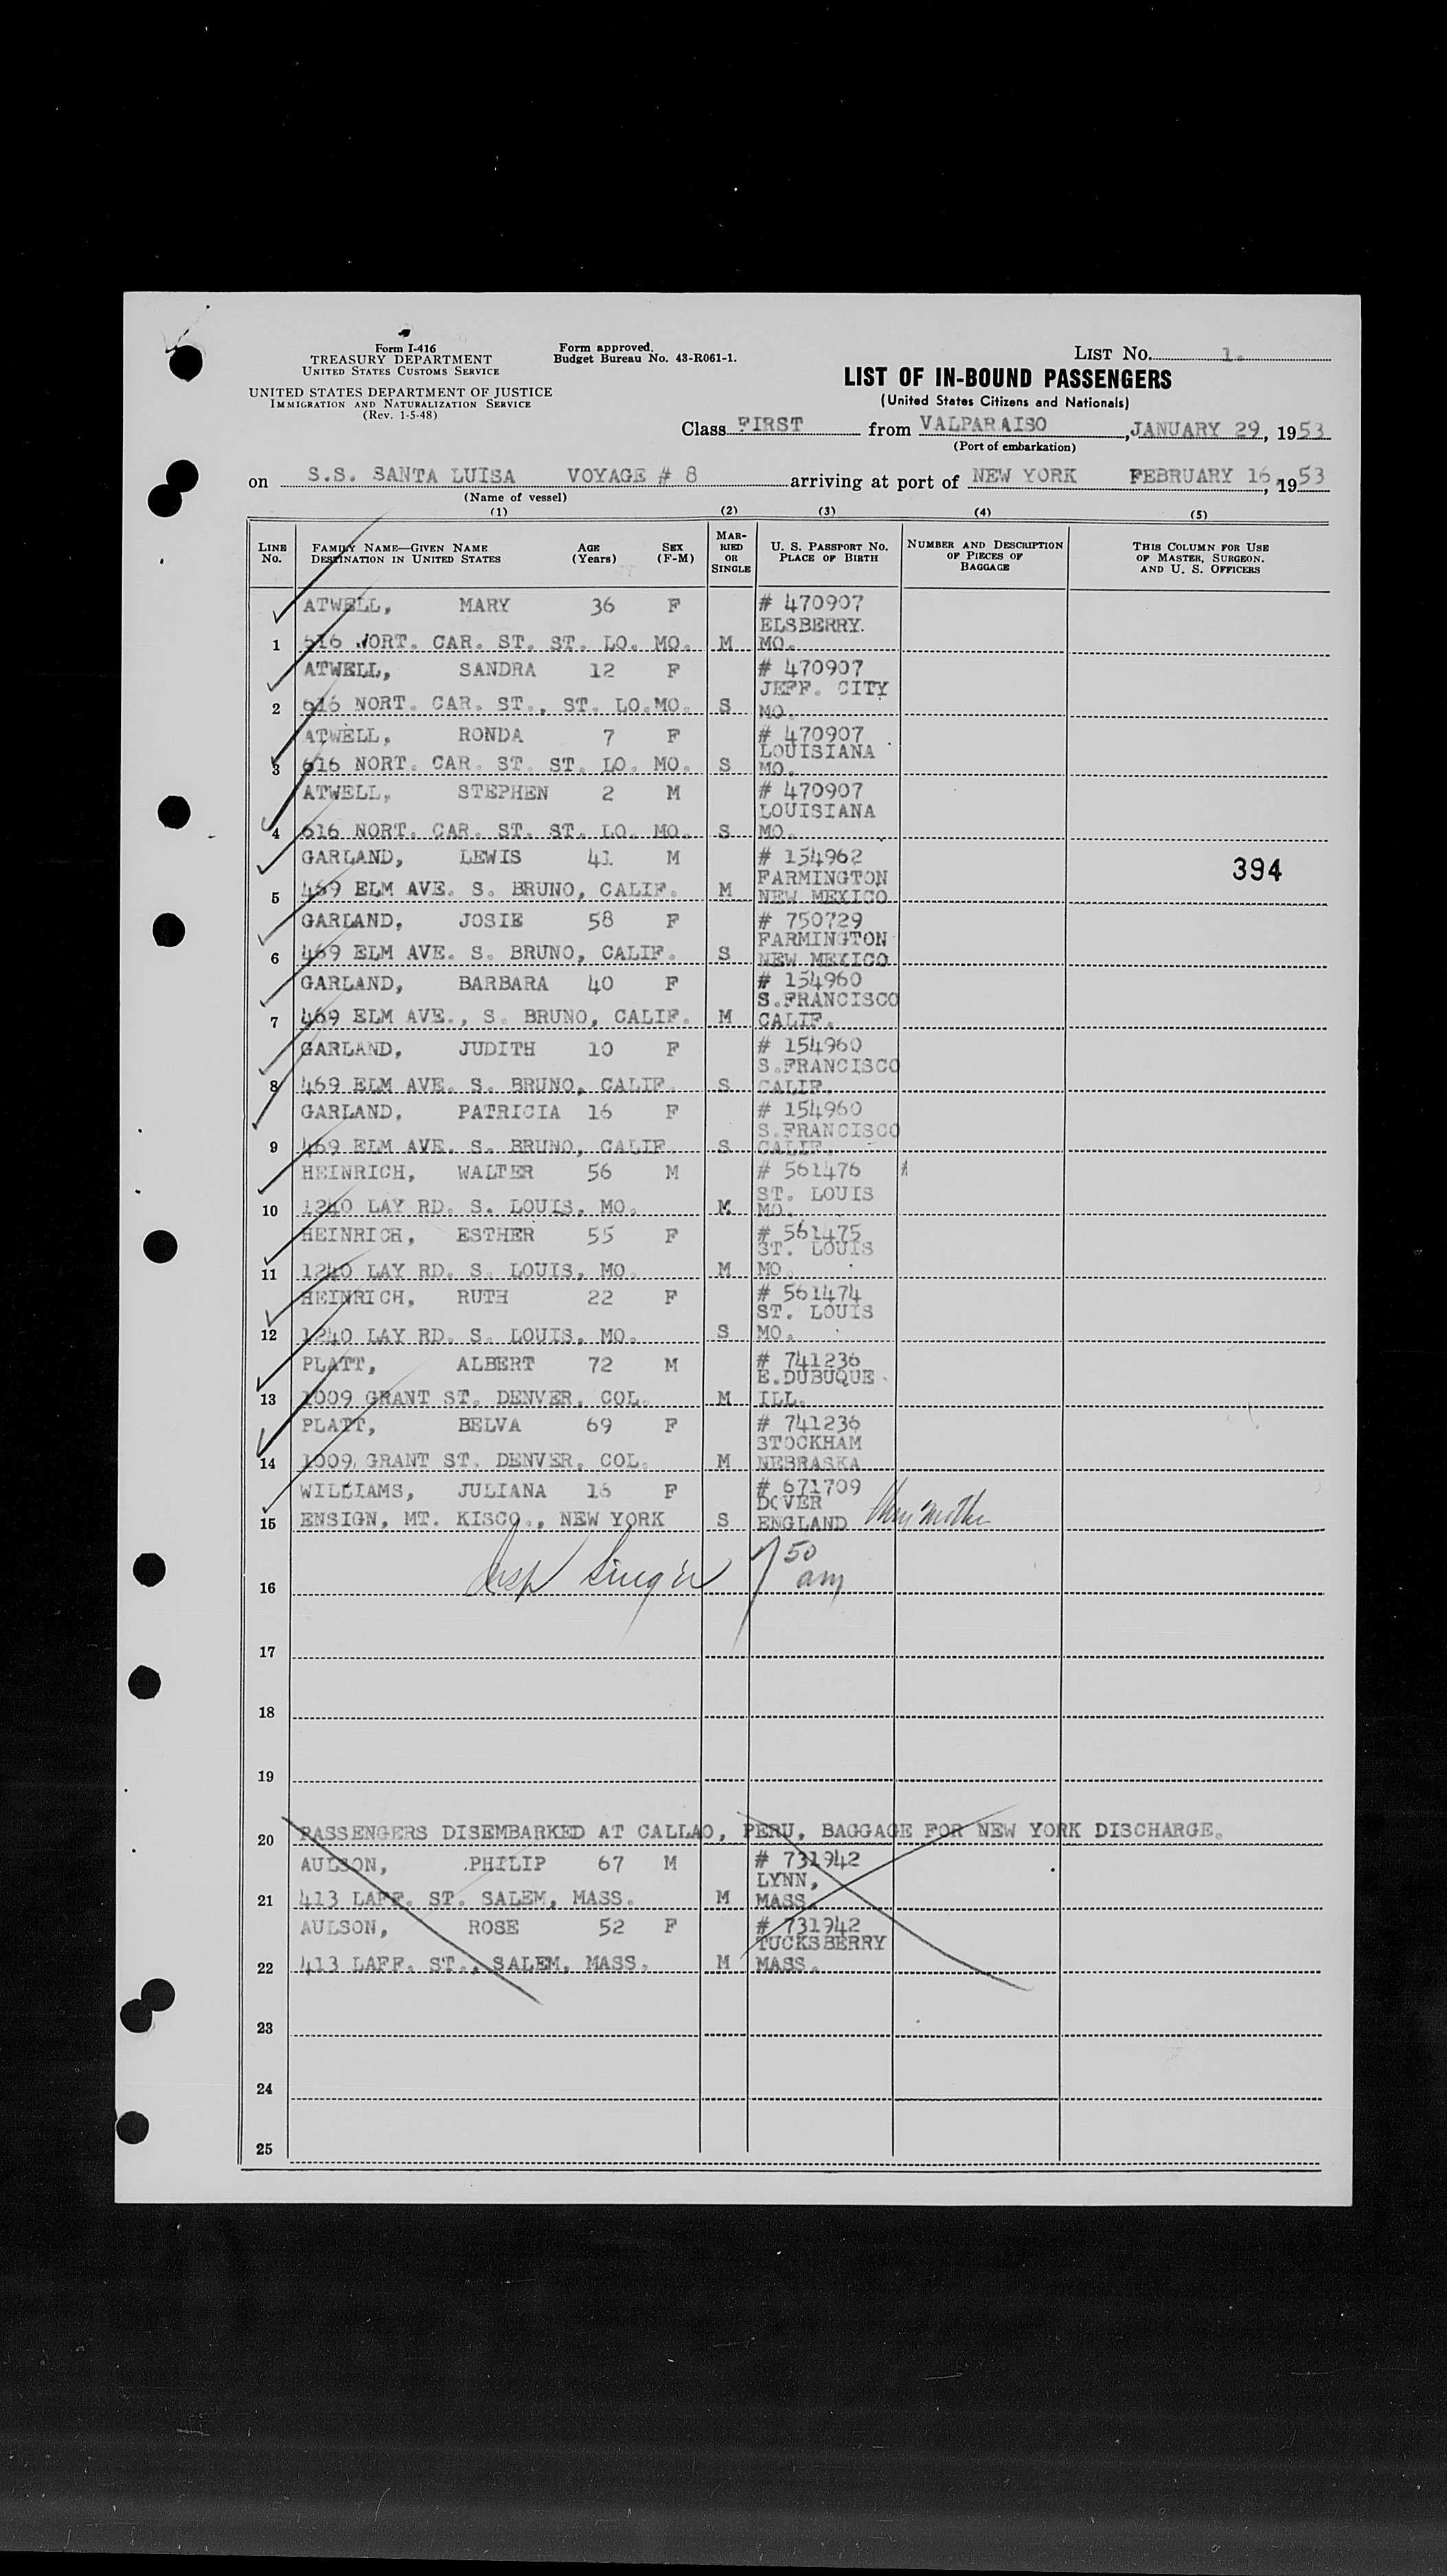 Form I-416
TREASURY DEPARTMENT
UNITED STATES CUSTOMS SERVICE
UNITED STATES DEPARTMENT OF JUSTICE
IMMIGRATION AND NATURALIZATION SERVICE
(Rev. 1-5-48)
Form approved.
Budget Bureau No. 43-R061-1.
LIST No. 1.
LIST OF IN-BOUND PASSENGERS
(United States Citizens and Nationals)
Class FIRST from VALPARAISO, JANUARY 29, 1953
(Port of embarkation)
on S.S. SANTA LUISA VOYAGE # 8 arriving at port of NEW YORK FEBRUARY 16, 1953
(Name of vessel)
(1) (2) (3) (4) (5)
LINE No.
FAMILY NAME—GIVEN NAME
DESTINATION IN UNITED STATES
AGE (Years)
SEX (F-M)
MARRIED OR SINGLE
U. S. PASSPORT NO.
PLACE OF BIRTH
NUMBER AND DESCRIPTION OF PIECES OF BAGGAGE
THIS COLUMN FOR USE OF MASTER, SURGEON, AND U. S. OFFICERS
ATWELL, MARY 36 F # 470907
ELSBERRY.
1 616 NORT. CAR. ST. ST. LO. MO. M MO.
ATWELL, SANDRA 12 F # 470907
JEFF. CITY
2 616 NORT. CAR. ST., ST. LO.MO. S MO.
ATWELL, RONDA 7 F # 470907
LOUISIANA
3 616 NORT. CAR. ST. ST. LO. MO. S MO.
ATWELL, STEPHEN 2 M # 470907
LOUISIANA
4 616 NORT. CAR. ST. ST. LO. MO. S MO.
GARLAND, LEWIS 41 M # 154962
FARMINGTON
394
5 469 ELM AVE. S. BRUNO, CALIF. M NEW MEXICO
GARLAND, JOSIE 58 F # 750729
FARMINGTON
6 469 ELM AVE. S. BRUNO, CALIF. S NEW MEXICO
GARLAND, BARBARA 40 F # 154960
S.FRANCISCO
7 469 ELM AVE., S. BRUNO, CALIF. M CALIF.
GARLAND, JUDITH 10 F # 154960
S.FRANCISCO
8 469 ELM AVE. S. BRUNO, CALIF. S CALIF.
GARLAND, PATRICIA 16 F # 154960
S.FRANCISCO
9 469 ELM AVE. S. BRUNO, CALIF. S CALIF.
HEINRICH, WALTER 56 M # 561476
ST. LOUIS
10 1240 LAY RD. S. LOUIS, MO. M MO.
HEINRICH, ESTHER 55 F # 561475
ST. LOUIS
11 1240 LAY RD. S. LOUIS, MO. M MO.
HEINRICH, RUTH 22 F # 561474
ST. LOUIS
12 1240 LAY RD. S. LOUIS, MO. S MO.
PLATT, ALBERT 72 M # 741236
E.DUBUQUE
13 1009 GRANT ST. DENVER, COL. M ILL.
PLATT, BELVA 69 F # 741236
STOCKHAM
14 1009 GRANT ST. DENVER, COL. M NEBRASKA
WILLIAMS, JULIANA 16 F # 671709
DOVER
15 ENSIGN, MT. KISCO., NEW YORK S ENGLAND
16 Insp 7 50 am
17
18
19
20 PASSENGERS DISEMBARKED AT CALLAO, PERU, BAGGAGE FOR NEW YORK DISCHARGE.
AULSON, PHILIP 67 M # 731942
LYNN,
21 413 LAFF. ST. SALEM, MASS. M MASS.
AULSON, ROSE 52 F # 731942
TUCKSBERRY
22 413 LAFF. ST., SALEM, MASS. M MASS.
23
24
25